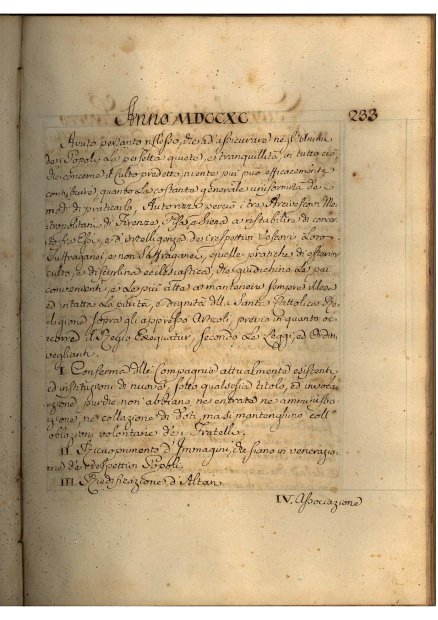 Anno MDCCXC 233
Avuto pertanto riflesso, che ad assicurare negl'animi
dei Popoli la perfetta quiete, e tranquillità in tutto ciò,
che concerne il culto predetto, niente più può efficacemente
contribuire, quanto la costante generale uniformità dei
modi di praticarlo, Autorizza perciò i tre Arcivescovi Me-
tropolitani di Firenze Pisa, e Siena a ristabilire di concer-
to fra essi, e d'intelligenza dei respettivi Vescovi Loro
Suffraganei, e non Suffraganei, quelle pratiche di esterno
culto, e disciplina ecclesiastica, che giudichino le più
convenienti, e le più atte a mantenere sempre illesa
ed intatta la purità, e dignità della Santa Cattolica Re-
ligione sopra gli appresso Articoli, previo in quanto oc-
corra il Regio Exequatur secondo le Leggi, ed Ordini
veglianti.
I. Conferma delle Compagnie attualmente esistenti
ed instituzioni di nuove, sotto qualsisia titolo, ed invoca-
zione, purchè non abbiano, nè entrate nè amministra-
zione, nè collazione di Doti, ma si mantenghino coll'
oblazioni volontarie dei Fratelli.
II. Ricuoprimento d'Immagini, che siano in venerazio-
ne de' respettivi Popoli.
III. Riedificazione d'Altari
IV. Associazione